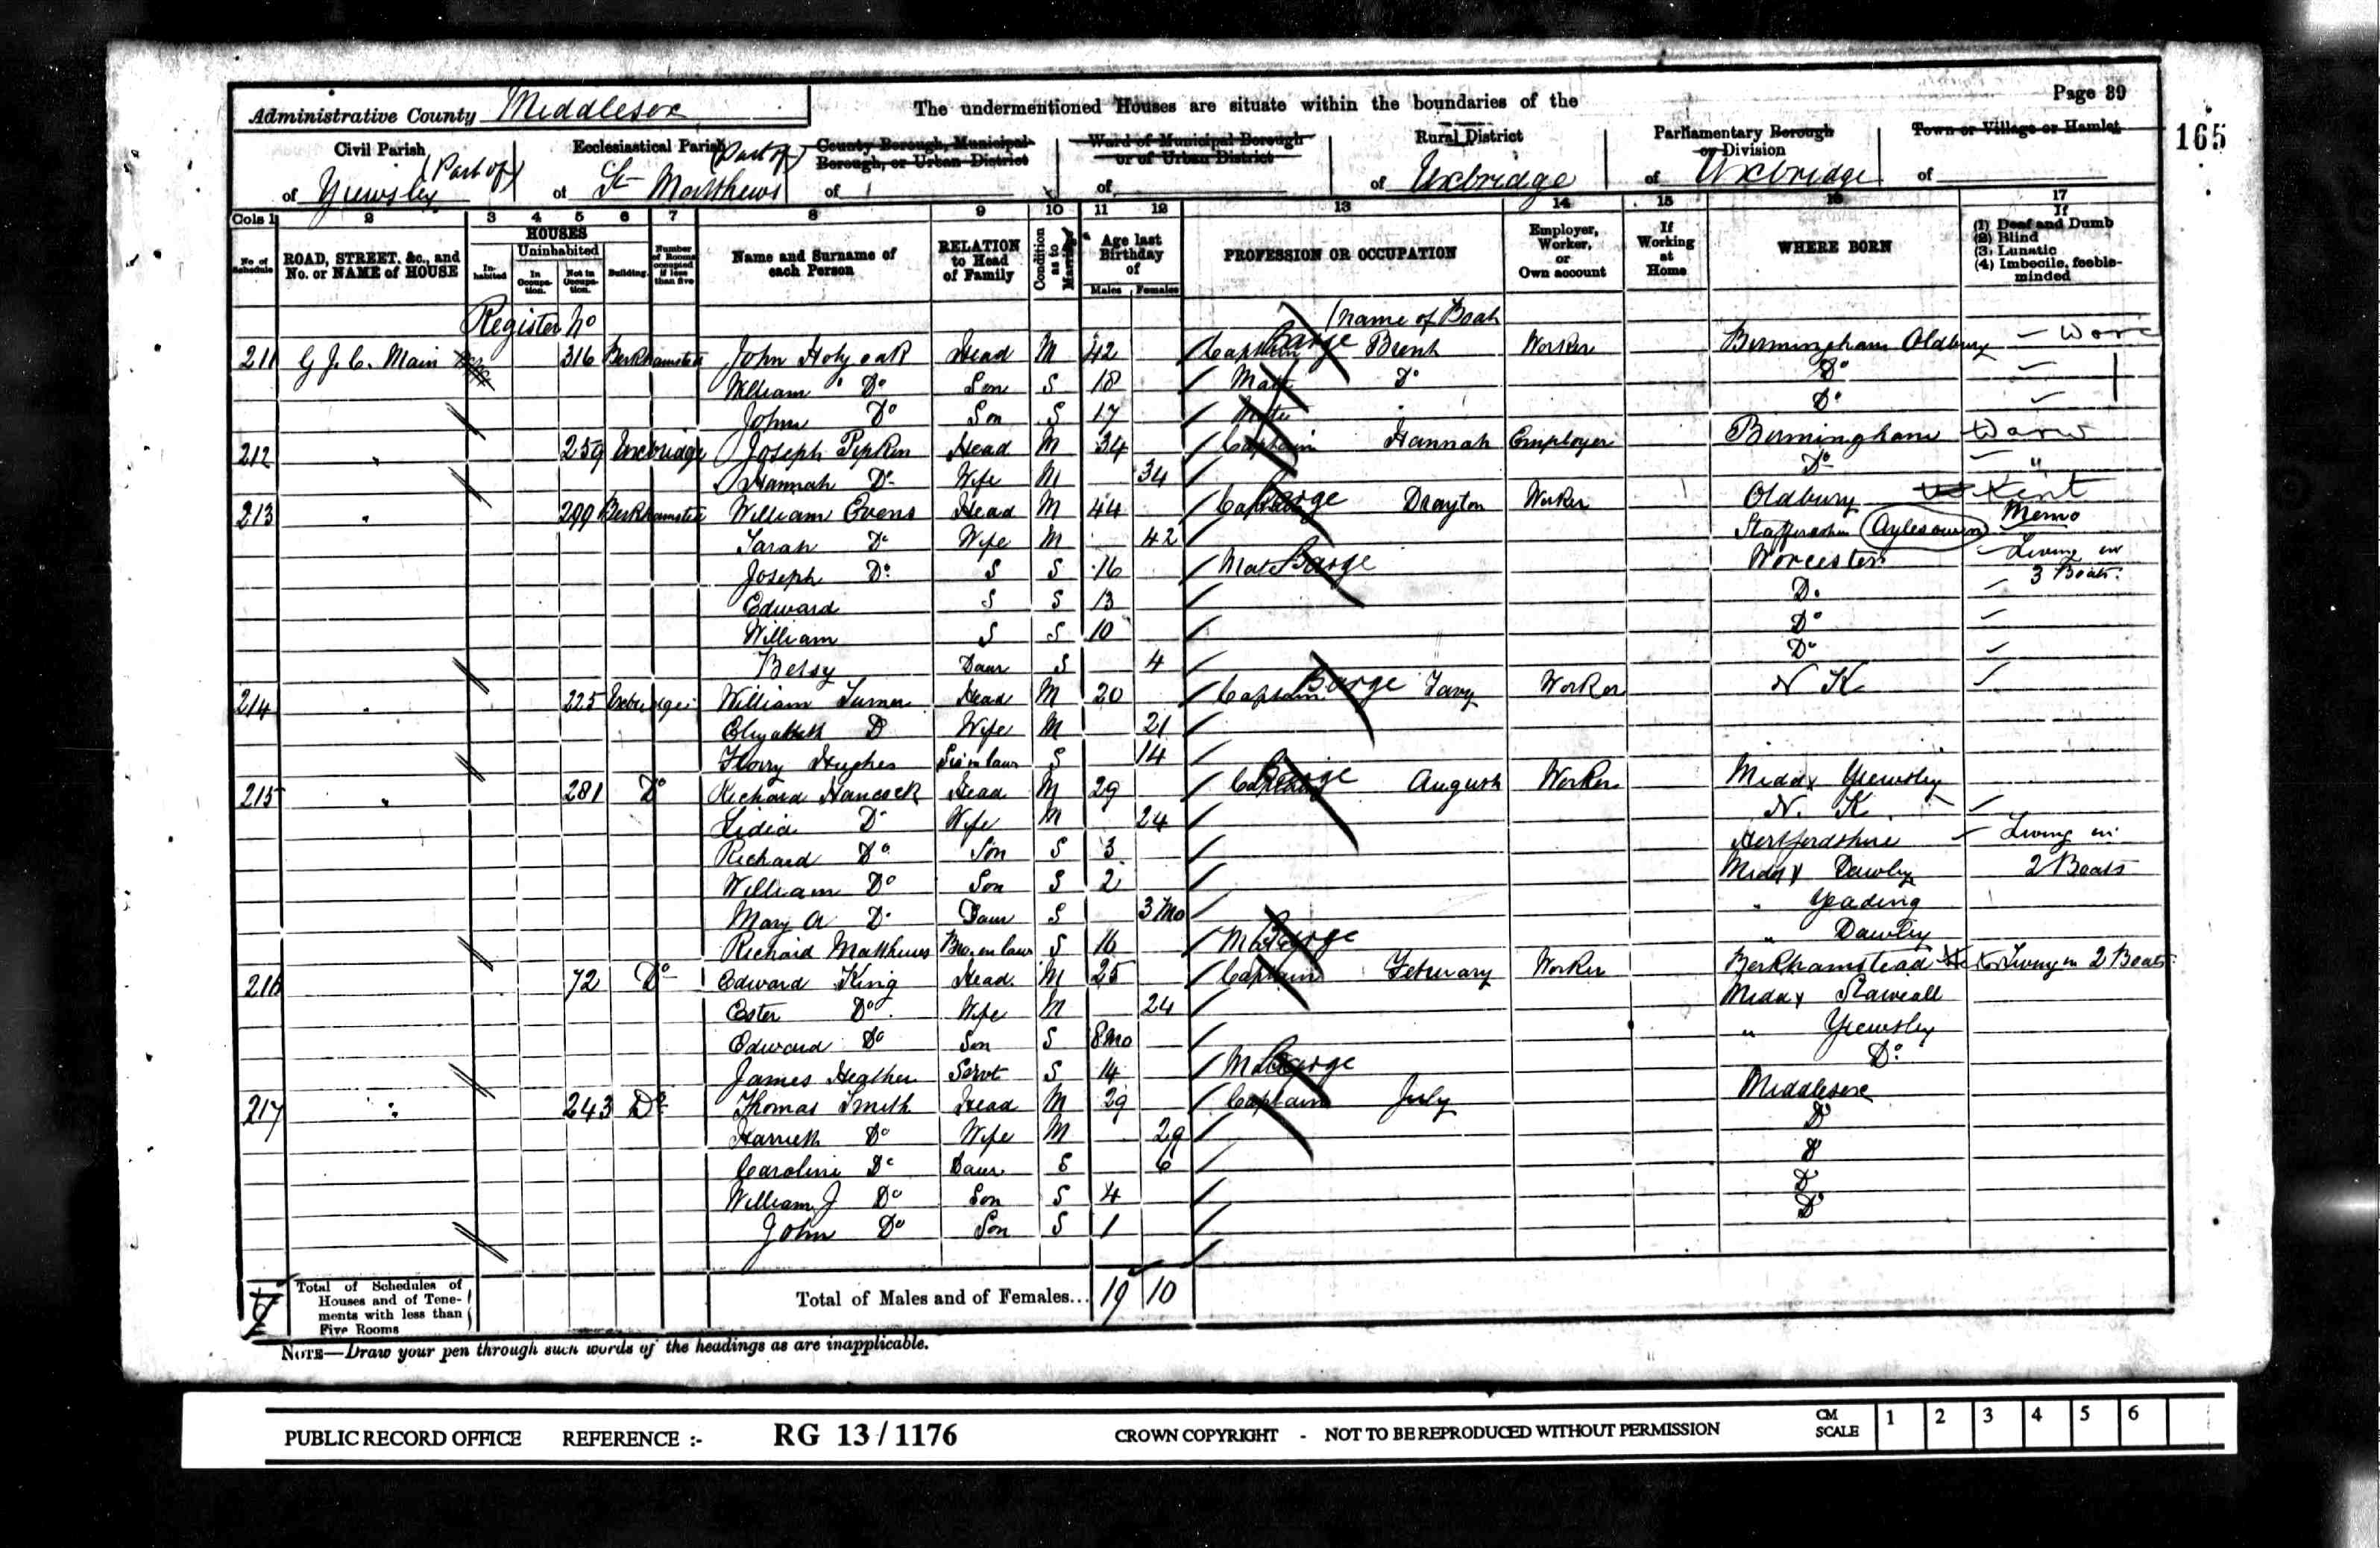 Page 39
Administrative County Middlesex
The undermentioned Houses are situate within the boundaries of the
165
Civil Parish of Yiewsley (Part of)
Ecclesiastical Parish of St Matthews (Part of)
County Borough, Municipal Borough, or Urban District of
Ward of Municipal Borough or of Urban District of
Rural District of Uxbridge
Parliamentary Borough or Division of Uxbridge
Town or Village or Hamlet of
Cols 1 2 3 4 5 6 7 8 9 10 11 12 13 14 15 16 17
No. of Schedule
ROAD, STREET, &c., and No. or NAME of HOUSE
HOUSES
Inhabited
Uninhabited
In Occupation.
Not in Occupation.
Building.
Number of Rooms occupied if less than five
Name and Surname of each Person
RELATION to Head of Family
Condition as to Marriage
Age last Birthday of
Males Females
PROFESSION OR OCCUPATION
Employer, Worker, or Own account
If Working at Home
WHERE BORN
If
(1) Deaf and Dumb
(2) Blind
(3) Lunatic
(4) Imbecile, feeble-minded
Register No (name of Boat
211 G J. C. Main 316 Berkhamsted John Holyoak Head M 42 Captain Barge Brent Worker Birmingham Oldbury Worc
William Do Son S 18 Mate Do Do
John Do Son S 17 Mate Do
212 " 259 Uxbridge Joseph Pipkin Head M 34 Captain Hannah Employer Birmingham Warw
Hannah Do Wife M 34 Do "
213 " 299 Berkhamsted William Evens Head M 44 Captain Barge Drayton Worker Oldbury Kent
Sarah Do Wife M 42 Staffordshire Memo
Joseph Do S S 16 Mate Barge Worcester Living in
Edward S S 13 Do 3 Boats
William S S 10 Do
Betsy Daur S 4 Do
214 " 225 Uxbridge William Turner Head M 20 Captain Barge Tavy Worker N K
Elizabeth D Wife M 21
Hughes Sis in law S 14
215 " 281 Do Richard Hancock Head M 29 Captain Barge August Worker Middx Yiewsley
Lidia Do Wife M 24 N. K.
Richard Do Son S 3 Hertfordshire Living in
William Do Son S 2 Middx Dawley 2 Boats
Mary A Do Daur S 3 Mo " Yeading
Richard Matthews Bro in law S 16 Mate Barge " Dawley
216 72 Do Edward King Head M 25 Captain February Worker Berkhamstead Living in 2 Boats
Ester Do Wife M 24 Middx
Edward Do Son S 8 Mo " Yiewsley
James Heather Servt S 14 Mate Barge Do
217 " 243 Do Thomas Smith Head M 29 Captain July Middlesex
Harriett Do Wife M 29 Do
Caroline Do Daur S 6 Do
William J Do Son S 4 D
John Do Son S 1 Do
Total of Schedules of Houses and of Tenements with less than Five Rooms
Total of Males and of Females... 19 10
NOTE—Draw your pen through such words of the headings as are inapplicable.
PUBLIC RECORD OFFICE REFERENCE :- RG 13/1176 CROWN COPYRIGHT - NOT TO BE REPRODUCED WITHOUT PERMISSION CM SCALE 1 2 3 4 5 6